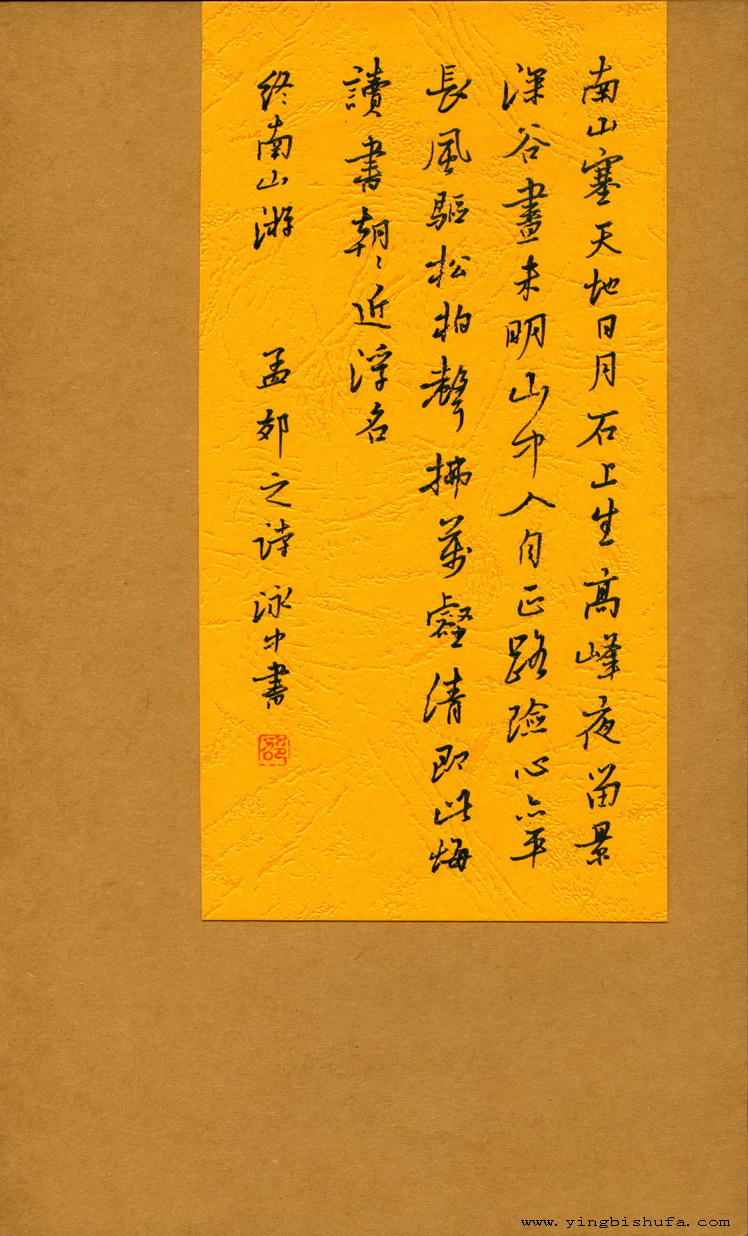 南山塞天地日月石上生高峰夜留景
深谷晝未明山中人自正路險心亦平
長風驅松柏聲拂萬壑清即此悔
讀書朝〻近浮名
終南山游　孟郊之詩泳中書
www.yingbishufa.com